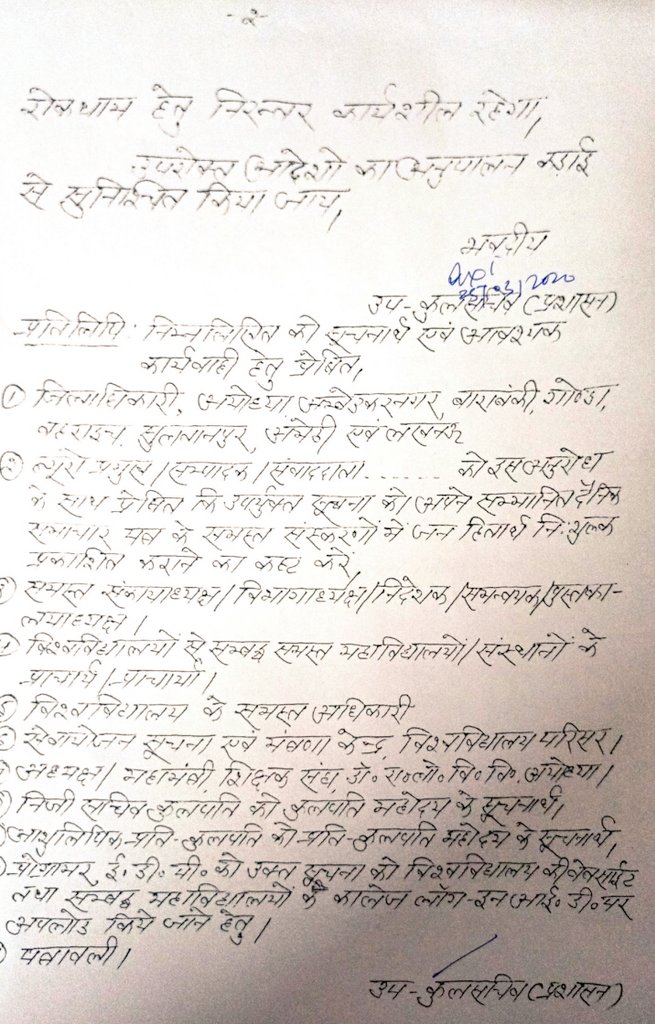 -२-
रोकथाम हेतु निरन्तर कार्यशील रहेगा,
उपरोक्त आदेशो का अनुपालन कड़ाई
से सुनिश्चित किया जाय,
भवदीय
2020
उप-कुलसचिव (प्रशासन)
प्रतिलिपि: निम्नलिखित को सूचनार्थ एवं आवश्यक
कार्यवाही हेतु प्रेषित,
① जिलाधिकारी, अयोध्या, अम्बेडकरनगर, बाराबंकी, गोण्डा,
बहराइच, सुलतानपुर, अमेठी एवं लखनऊ
② ब्यूरो प्रमुख/सम्पादक/संवाददाता........ को इस अनुरोध
के साथ प्रेषित कि उपर्युक्त सूचना को अपने सम्मानित दैनिक
समाचार पत्र के समस्त संस्करणों में जन हितार्थ नि:शुल्क
प्रकाशित कराने का कष्ट करें,
समस्त संकायाध्यक्ष/विभागाध्यक्ष/निदेशक/समन्वयक/पुस्तका-
लयाध्यक्ष।
विश्वविद्यालयों से सम्बद्ध समस्त महाविद्यालयों/संस्थानों के
प्राचार्य/प्राचार्या।
⑤ विश्वविद्यालय के समस्त अधिकारी
⑥ सेवायोजन सूचना एवं मंत्रणा केन्द्र, विश्वविद्यालय परिसर।
अध्यक्ष/महामंत्री, शिक्षक संघ, डॉ० रा० लो० वि० वि०, अयोध्या।
निजी सचिव कुलपति को कुलपति महोदय के सूचनार्थ,
आशुलिपिक प्रति-कुलपति को प्रति-कुलपति महोदय के सूचनार्थ,
प्रोग्रामर, ई० डी० पी० को उक्त सूचना को विश्वविद्यालय की वेबसाईट
तथा सम्बद्ध महाविद्यालयों के कालेज लॉग-इन आई० डी० पर
अपलोड किये जाने हेतु।
पत्रावली।
उप-कुलसचिव (प्रशासन)